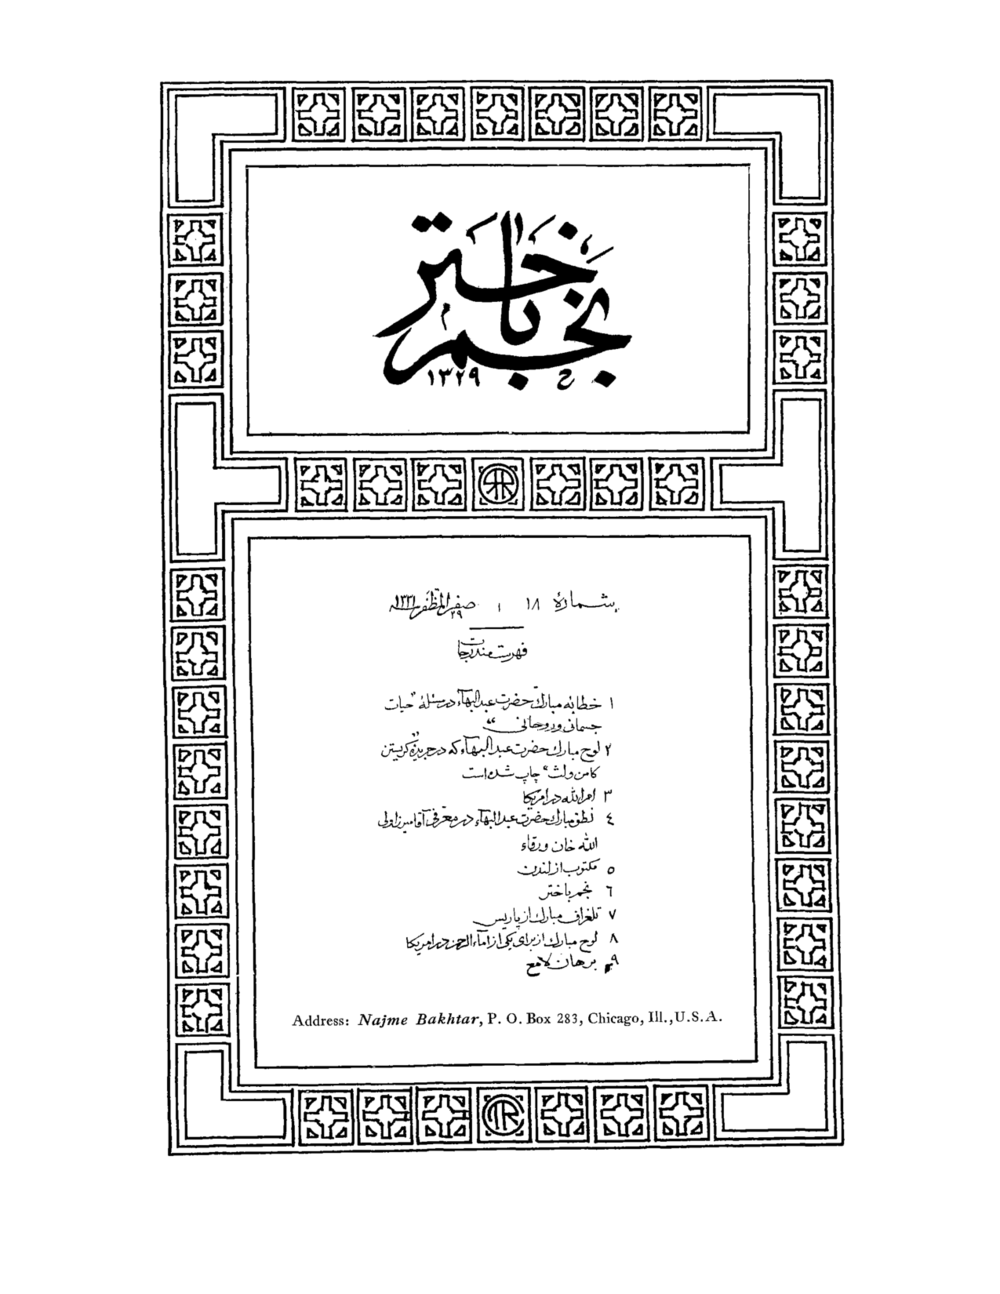 نجم باختر
ح ۱۳۲۹
شمارهٔ ۱۸ ۱ ۲۹ صفر المظفر ۱۳۳۱
فهرست مندرجات
۱ خطابه مبارک حضرت عبدالبهآء در مسئلهٔ "حیات
جسمانی و روحانی"
۲ لوح مبارک حضرت عبدالبهآء که در جریدهٔ "کریستن
کامن ولث" چاپ شده است
۳ امرالله در امریکا
٤ نطق مبارک حضرت عبدالبهآء در معرّفی آقا میرزا ولی
الله خان ورقاء
٥ مکتوب از لندن
٦ نجم باختر
۷ تلغراف مبارک از پاریس
۸ لوح مبارک از برای یکی از امآء الرحمن در امریکا
۹ برهان لامع
Address: Najme Bakhtar, P. O. Box 283, Chicago, Ill., U.S.A.